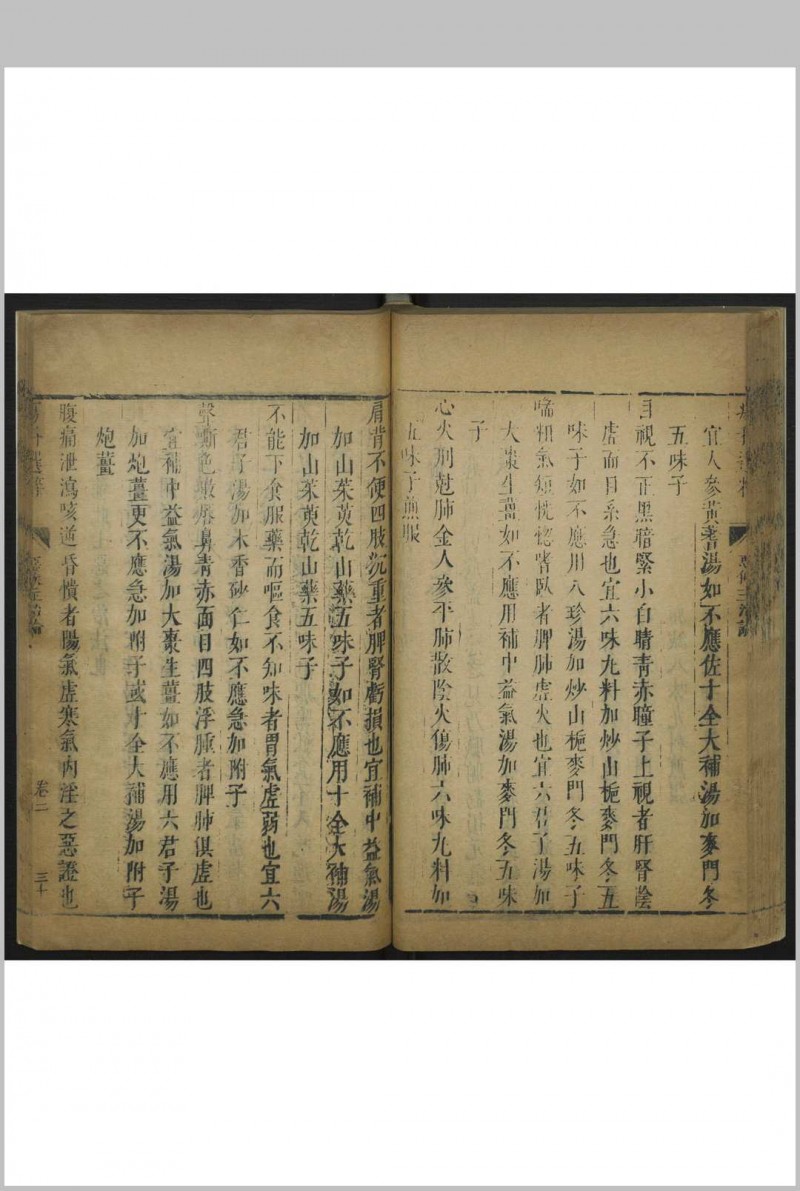 宜人參黃蓍湯如不應佐十全大補湯加麥門冬
五味子
目視不正黑暗緊小白睛青赤瞳子上視者肝腎陰
虛而目系急也宜六味丸料加炒山梔麥門冬五
味子如不應用八珍湯加炒山梔麥門冬五味子
啼粗氣短恍惚嗜臥者脾肺虛火也宜六君子湯加
大棗生薑如不應用補中益氣湯加麥門冬五味
子
心火刑尅肺金人參平肺散陰火傷肺六味丸料加
五味子煎服
肩背不便四肢沉重者脾腎虧損也宜補中益氣湯
加山茱萸乾山藥五味子如不應用十全大補湯
加山茱萸乾山藥五味子
不能下食服藥而嘔食不知味者胃氣虛弱也宜六
君子湯加木香砂仁如不應急加附子
聲嘶色敗唇鼻青赤面目四肢浮腫者脾肺俱虛也
宜補中益氣湯加大棗生薑如不應用六君子湯
加炮薑更不應急加附子或十全大補湯加附子
炮薑
腹痛泄瀉咳逆昏憒者陽氣虛寒氣內淫之惡證也
卷二
三十